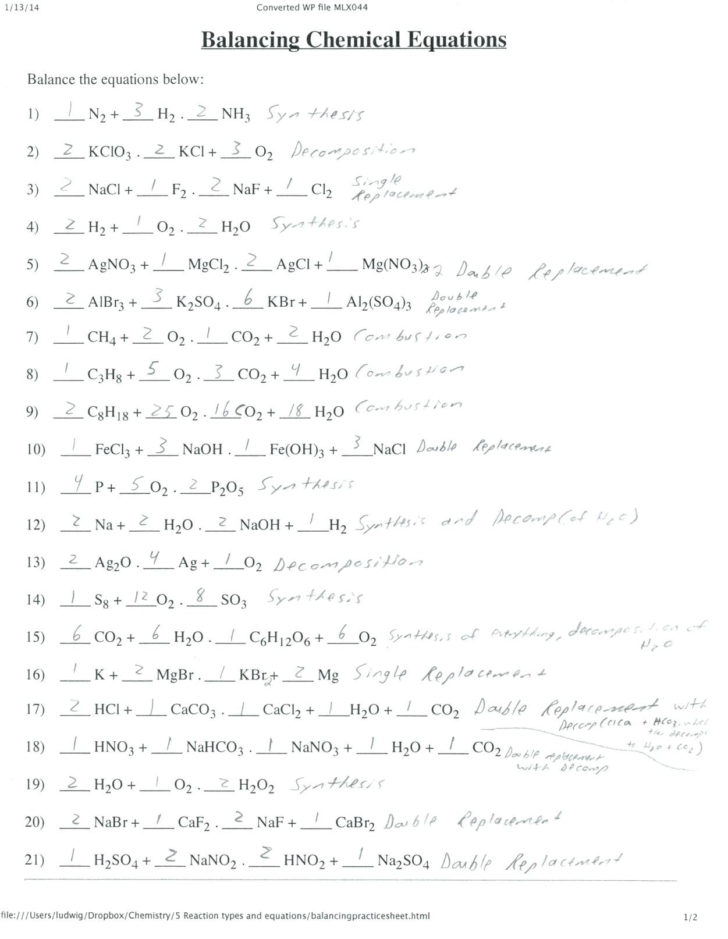 1/13/14 Converted WP file MLX044
Balancing Chemical Equations
Balance the equations below:
1) 1 N₂ + 3 H₂ . 2 NH₃ Synthesis
2) 2 KClO₃ . 2 KCl + 3 O₂ Decomposition
3) 2 NaCl + 1 F₂ . 2 NaF + 1 Cl₂ Single Replacement
4) 2 H₂ + 1 O₂ . 2 H₂O Synthesis
5) 2 AgNO₃ + 1 MgCl₂ . 2 AgCl + 1 Mg(NO₃)₂ Double Replacement
6) 2 AlBr₃ + 3 K₂SO₄ . 6 KBr + 1 Al₂(SO₄)₃ Double Replacement
7) 1 CH₄ + 2 O₂ . 1 CO₂ + 2 H₂O Combustion
8) 1 C₃H₈ + 5 O₂ . 3 CO₂ + 4 H₂O Combustion
9) 2 C₈H₁₈ + 25 O₂ . 16 CO₂ + 18 H₂O Combustion
10) 1 FeCl₃ + 3 NaOH . 1 Fe(OH)₃ + 3 NaCl Double Replacement
11) 4 P + 5 O₂ . 2 P₂O₅ Synthesis
12) 2 Na + 2 H₂O . 2 NaOH + 1 H₂ Synthesis and Decomp (of H₂O)
13) 2 Ag₂O . 4 Ag + 1 O₂ Decomposition
14) 1 S₈ + 12 O₂ . 8 SO₃ Synthesis
15) 6 CO₂ + 6 H₂O . 1 C₆H₁₂O₆ + 6 O₂ Synthesis of everything, decomposition of H₂O
16) 1 K + 2 MgBr . 1 KBr₂ + 2 Mg Single Replacement
17) 2 HCl + 1 CaCO₃ . 1 CaCl₂ + 1 H₂O + 1 CO₂ Double Replacement with
Decomp + HCO₃
to H₂O + CO₂)
18) 1 HNO₃ + 1 NaHCO₃ . 1 NaNO₃ + 1 H₂O + 1 CO₂ Double replacement with Decomp
19) 2 H₂O + 1 O₂ . 2 H₂O₂ Synthesis
20) 2 NaBr + 1 CaF₂ . 2 NaF + 1 CaBr₂ Double Replacement
21) 1 H₂SO₄ + 2 NaNO₂ . 2 HNO₂ + 1 Na₂SO₄ Double Replacement
file:///Users/ludwig/Dropbox/Chemistry/5 Reaction types and equations/balancingpracticesheet.html 1/2